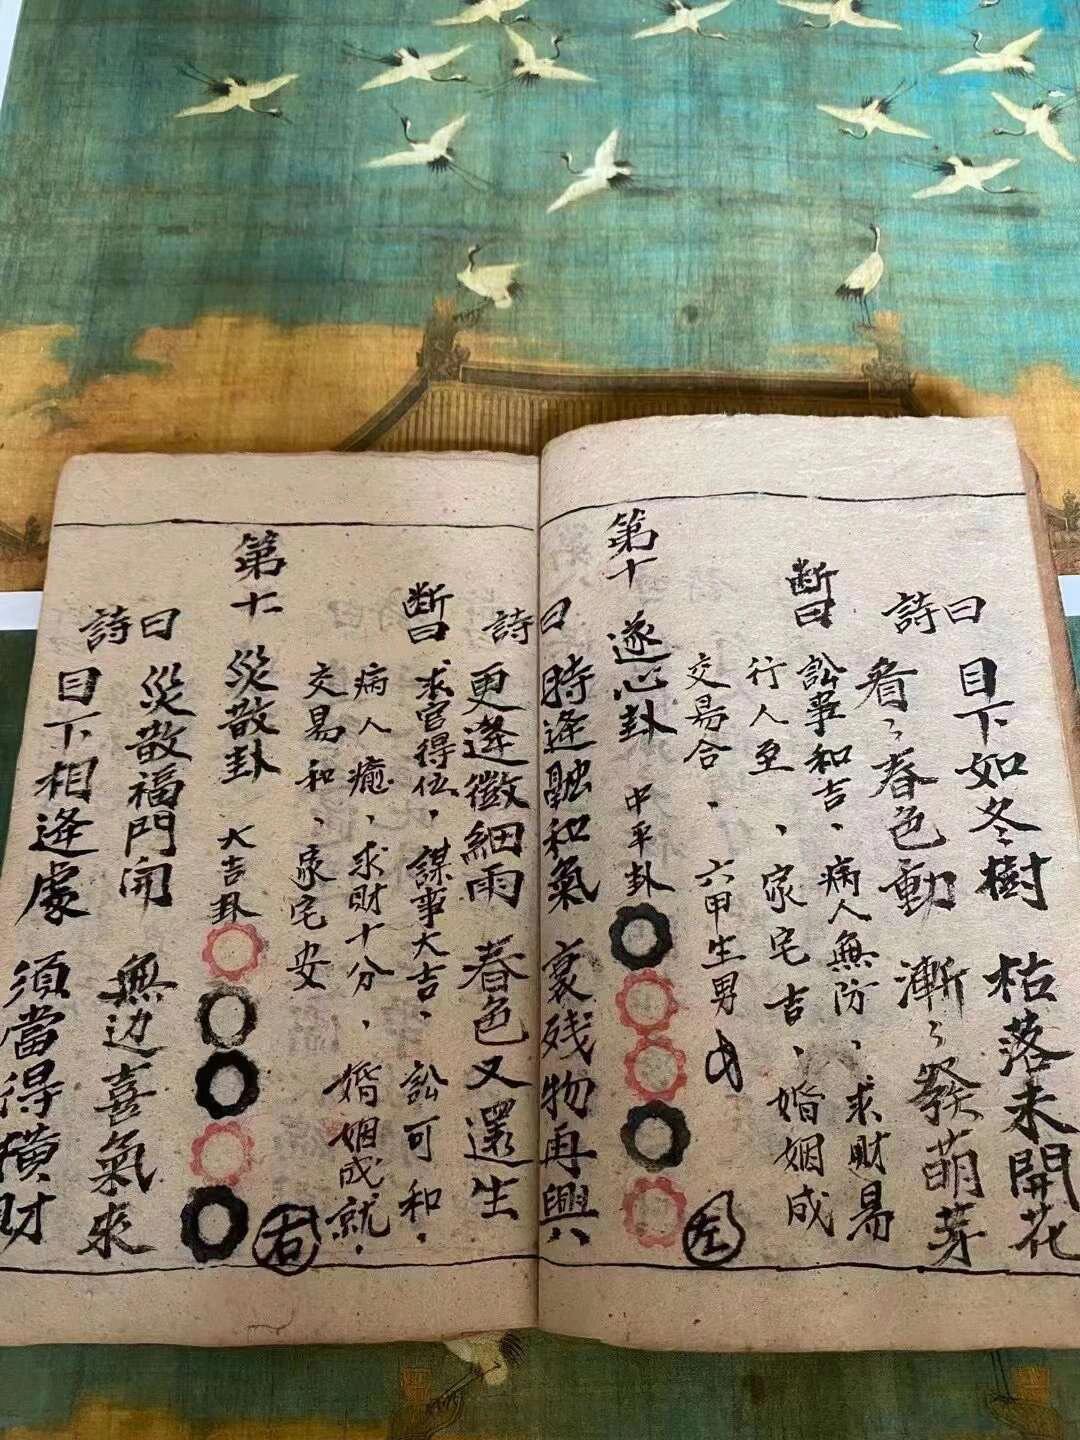 詩曰
目下如冬樹 枯落未開花
看〻春色動 漸〻發萌芽
断曰
訟事和吉、病人無防、求財易
行人至、家宅吉、婚姻成
交易合、六甲生男
左
第十 遂心卦 中平卦
詩曰
時逢融和氣 衰残物再興
更逢微細雨 春色又還生
断曰
求官得位、謀事大吉、訟可和、
病人癒、求財十分、婚姻成就、
交易和、家宅安
右
第十一 災散卦 大吉卦
詩曰
災散福門開 無边喜氣來
目下相逢處 須當得横財